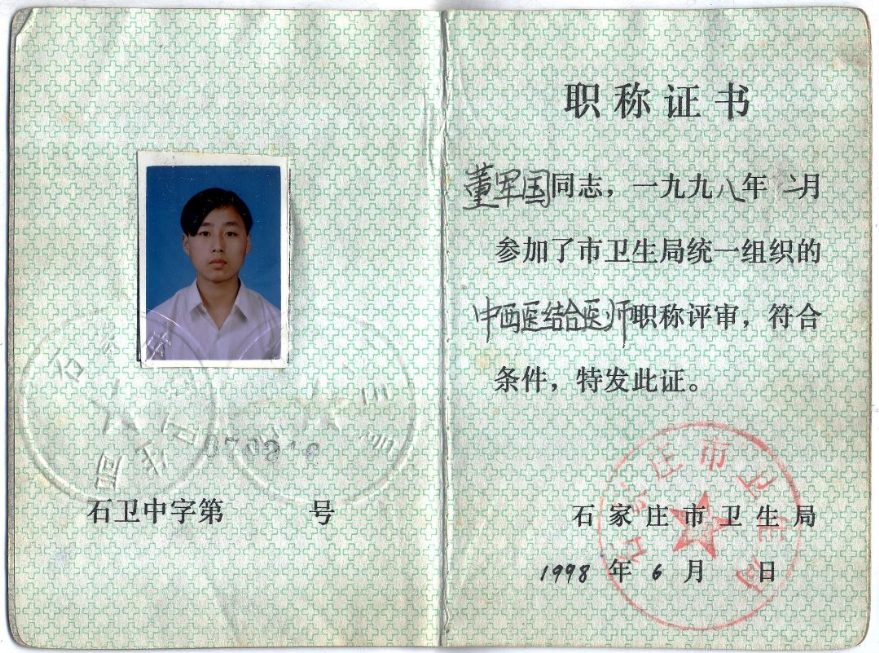 石卫中字第 号
职称证书
董军国同志，一九九八年 二月
参加了市卫生局统一组织的
中西医结合医师职称评审，符合
条件，特发此证。
石家庄市卫生局
石家庄市卫生局
1998 年 6 月 日